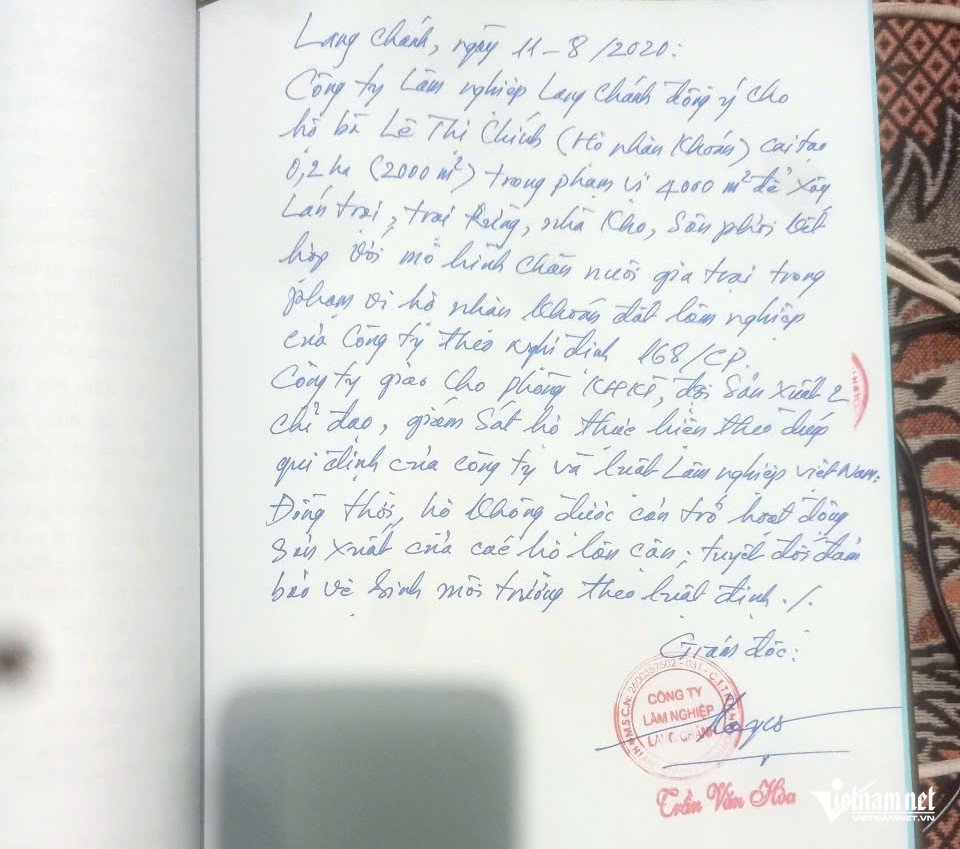 Lang Chánh, ngày 11-8/2020:
Công ty Lâm nghiệp Lang Chánh đồng ý cho
hộ bà Lê Thị Chính (Hộ nhận khoán) cải tạo
0,2 ha (2000 m²) trong phạm vi 4000 m² để xây
Lán trại, trại Rừng, nhà Kho, Sân phơi kết
hợp với mô hình chăn nuôi gia trại trong
phạm vi hộ nhận khoán đất lâm nghiệp
của Công ty theo Nghị định 168/CP.
Công ty giao cho phòng KHKT, đội Sản xuất 2
chỉ đạo, giám Sát hộ thực hiện theo đúng
qui định của công ty và luật Lâm nghiệp Việt Nam.
Đồng thời, hộ không được cản trở hoạt động
sản xuất của các hộ lân cận; tuyệt đối đảm
bảo vệ sinh môi trường theo luật định./.
Giám đốc:
CÔNG TY
LÂM NGHIỆP
LANG CHÁNH
Trần Văn Hòa
vietnamnet
VIETNAMNET.VN